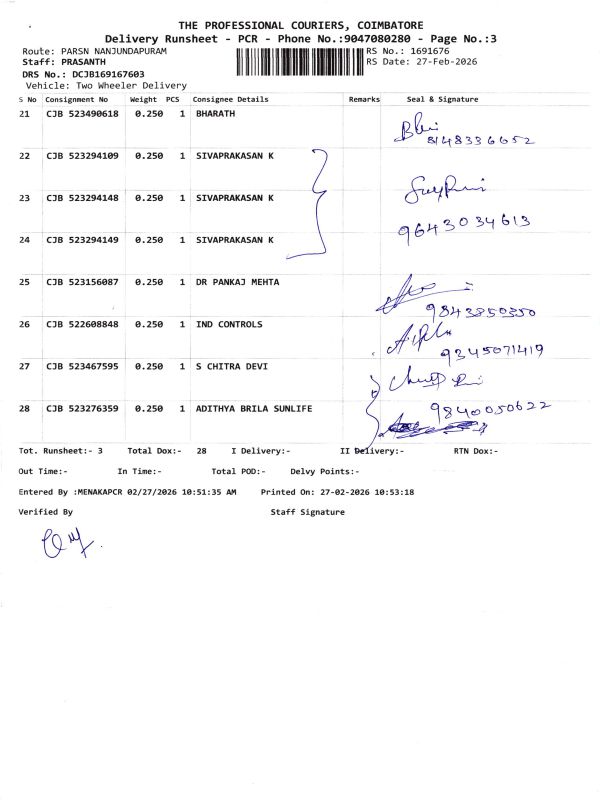 THE PROFESSIONAL COURIERS, COIMBATORE
Delivery Runsheet - PCR - Phone No.:9047080280 - Page No.:3
Route: PARSN NANJUNDAPURAM RS No.: 1691676
Staff: PRASANTH RS Date: 27-Feb-2026
DRS No.: DCJB169167603
Vehicle: Two Wheeler Delivery
S No Consignment No Weight PCS Consignee Details Remarks Seal & Signature
21 CJB 523490618 0.250 1 BHARATH
8148336652
22 CJB 523294109 0.250 1 SIVAPRAKASAN K
23 CJB 523294148 0.250 1 SIVAPRAKASAN K
9643034613
24 CJB 523294149 0.250 1 SIVAPRAKASAN K
25 CJB 523156087 0.250 1 DR PANKAJ MEHTA
9843850350
26 CJB 522608848 0.250 1 IND CONTROLS
9345071419
27 CJB 523467595 0.250 1 S CHITRA DEVI
28 CJB 523276359 0.250 1 ADITHYA BRILA SUNLIFE
9840050622
Tot. Runsheet:- 3 Total Dox:- 28 I Delivery:- II Delivery:- RTN Dox:-
Out Time:- In Time:- Total POD:- Delvy Points:-
Entered By :MENAKAPCR 02/27/2026 10:51:35 AM Printed On: 27-02-2026 10:53:18
Verified By Staff Signature